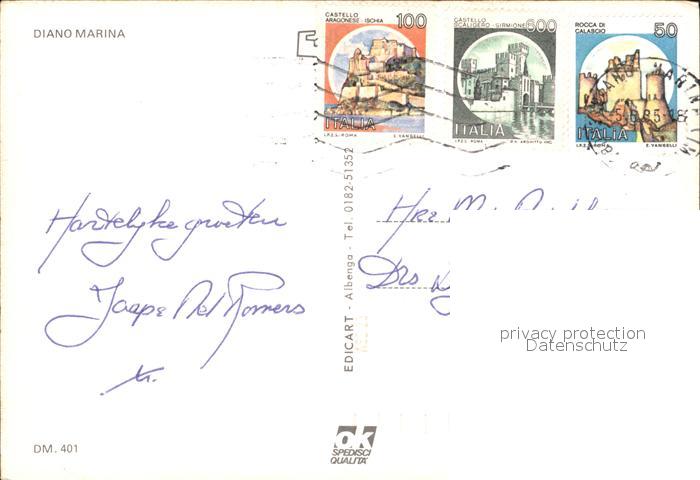 DIANO MARINA
CASTELLO
ARAGONESE - ISCHIA 100
ITALIA
I.P.Z.S. ROMA E. VANGELLI
CASTELLO
SCALIGERO - SIRMIONE 600
ITALIA
I.P.Z.S. ROMA
ROCCA DI
CALASCIO 50
ITALIA
I.P.Z.S. ROMA E. VANGELLI
Hartelyke groeten
Jaap
EDICART - Albenga - Tel. 0182-51352
Drs
privacy protection
Datenschutz
DM. 401
ok
SPEDISCI
QUALITA'